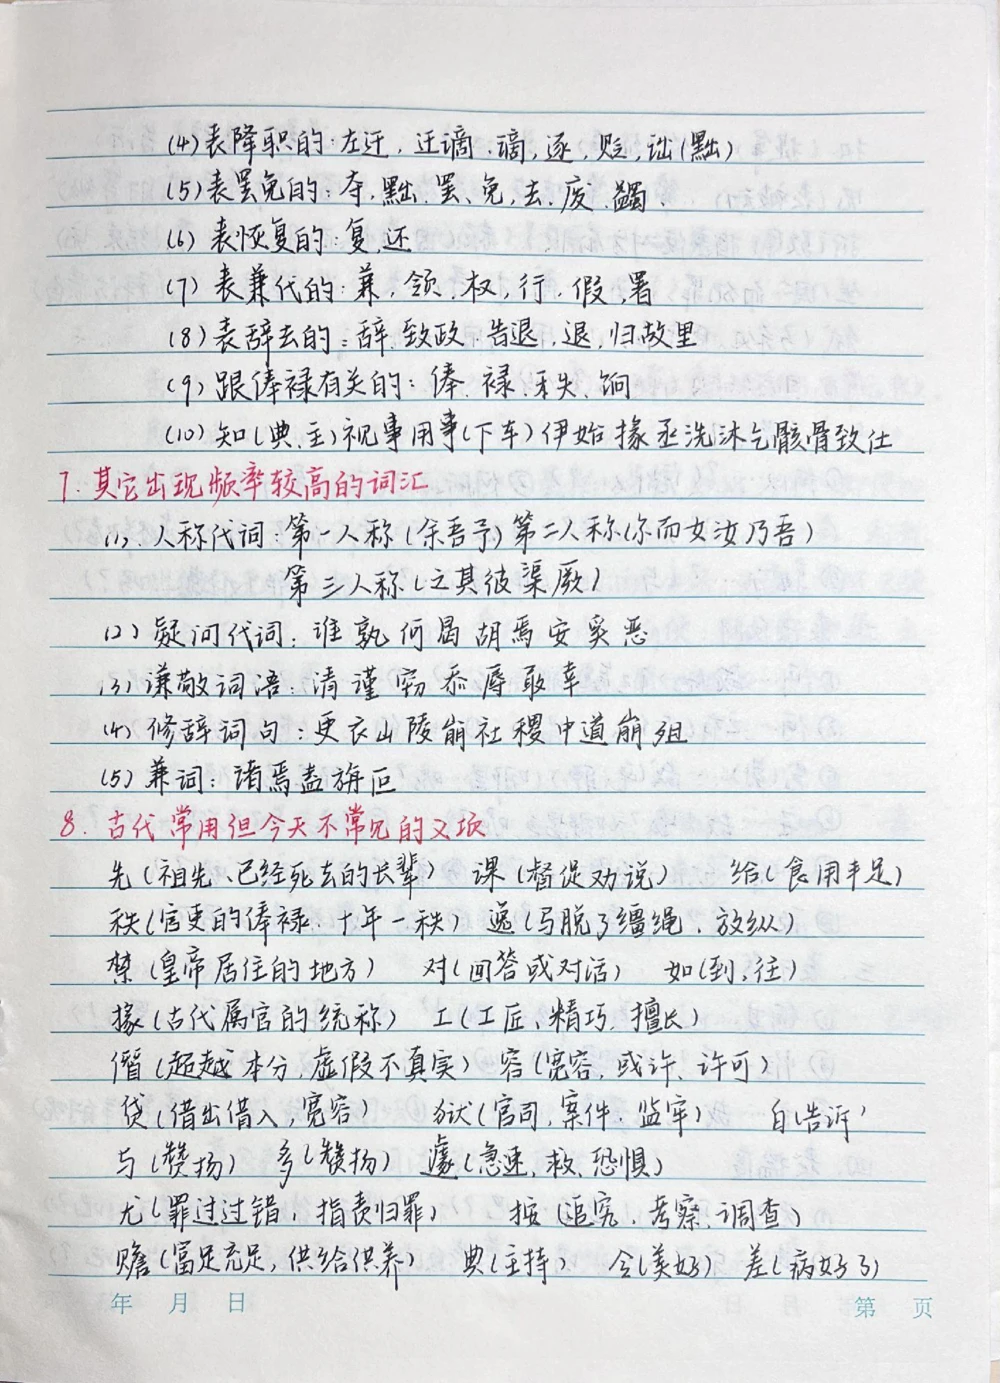 (4)表降职的:左迁、迁谪、谪,逐,贬,诎(黜)
(5)表罢免的:夺,黜、罢、免,去、废、蠲
(6)表恢复的:复,还
(7)表兼代的:兼,领、权,行、假,署
(8)表辞去的:辞、致政、告退,退,归故里
(9)跟俸禄有关的:俸、禄、秩、饷
(10)知(典、主)视事用事(下车)伊始掾丞洗沐乞骸骨致仕
7.其它出现频率较高的词汇
(1)、人称代词:第一人称(余吾予)第二人称(尔而女汝乃吾)
第三人称(之其彼渠厥)
(2)疑问代词:谁孰何曷胡焉安奚恶
(3)谦敬词语:请谨窃忝辱敢幸
(4)修辞词句:更衣山陵崩社稷中道崩殂
(5)兼词:诸焉盍旃叵
8.古代常用但今天不常见的义项
先(祖先、已经死去的长辈) 课(督促劝说) 给(食用丰足)
秩(官吏的俸禄、十年一秩) 逸(马脱了缰绳、放纵)
禁(皇帝居住的地方) 对(回答或对话) 如(到,往)
掾(古代属官的统称) 工(工匠、精巧、擅长)
僭(超越本分,虚假不真实) 容(宽容,或许、许可)
贷(借出借入,宽容) 狱(官司,案件、监牢) 白(告诉)
与(赞扬) 多(赞扬) 遽(急速、救、恐惧)
尤(罪过过错、指责归罪) 按(追究、考察、调查)
赡(富足充足,供给供养) 典(主持) 令(美好) 差(病好了)
年 月 日 第 页